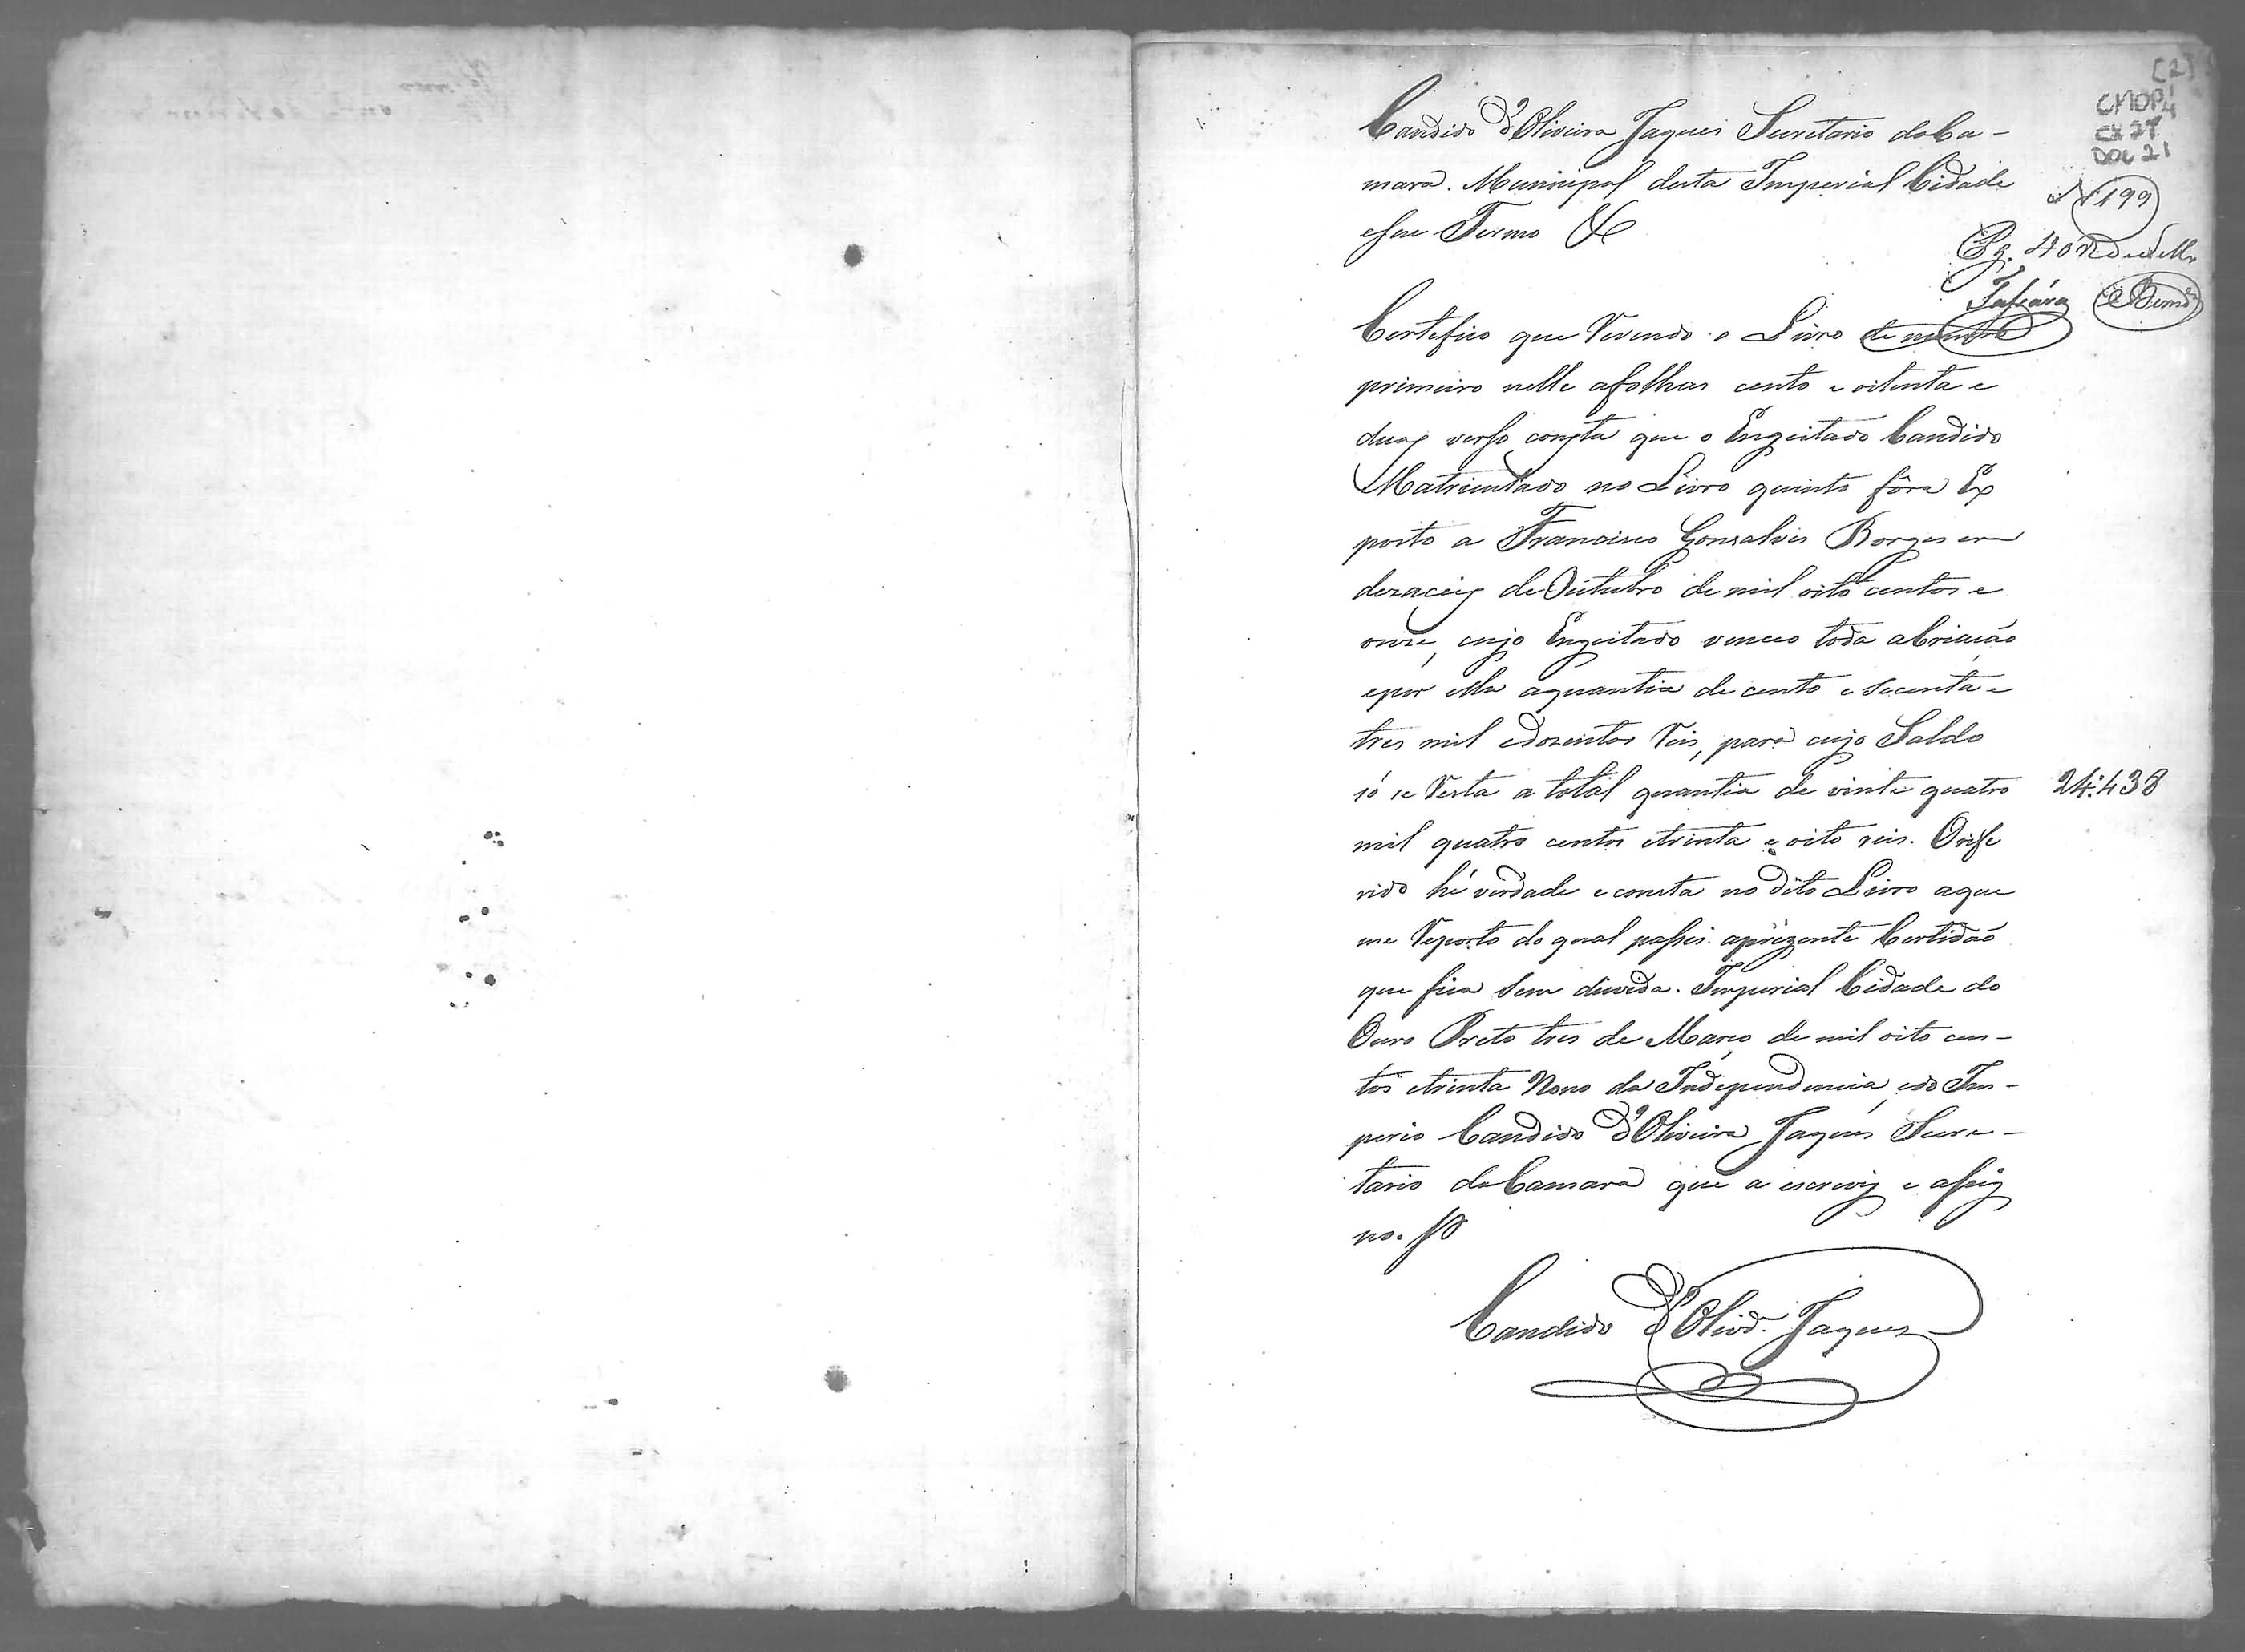 [2]
CMOP
CX 27
DOC 21
Candido d'Oliveira Jaques Secretario da Ca-
mara Municipal desta Imperial Cidade
eseu Termo &
N 199
Pg. 40
Certefico que Vevendo o Livro de numero
primeiro nelle afolhas cento e oitenta e
duas verso consta que o Engeitado Candido
Matriculado no Livro quinto fôra Ex
posto a Francisco Gonsalves Borges em
dezaceis de Outubro de mil oito centos e
onze, cujo Engeitado venceo toda aCriação
epor ella aquantia de cento e secenta e
tres mil edozentos Reis, para cujo Saldo
só se Resta a total quantia de vinte quatro
24:438
mil quatro centos etrinta e oito reis. Orefe
rido hé verdade e consta no dito Livro aque
me Reporto do qual passei aprezente Certidaõ
que fica sem duvida. Imperial Cidade do
Ouro Preto tres de Março de mil oito cen-
tos etrinta Nono da Independencia, edo Im-
perio Candido d'Oliveira Jaques Secre-
tario da Camara que a escrevy e assig
no.
Candido d'Olivr.ª Jaques